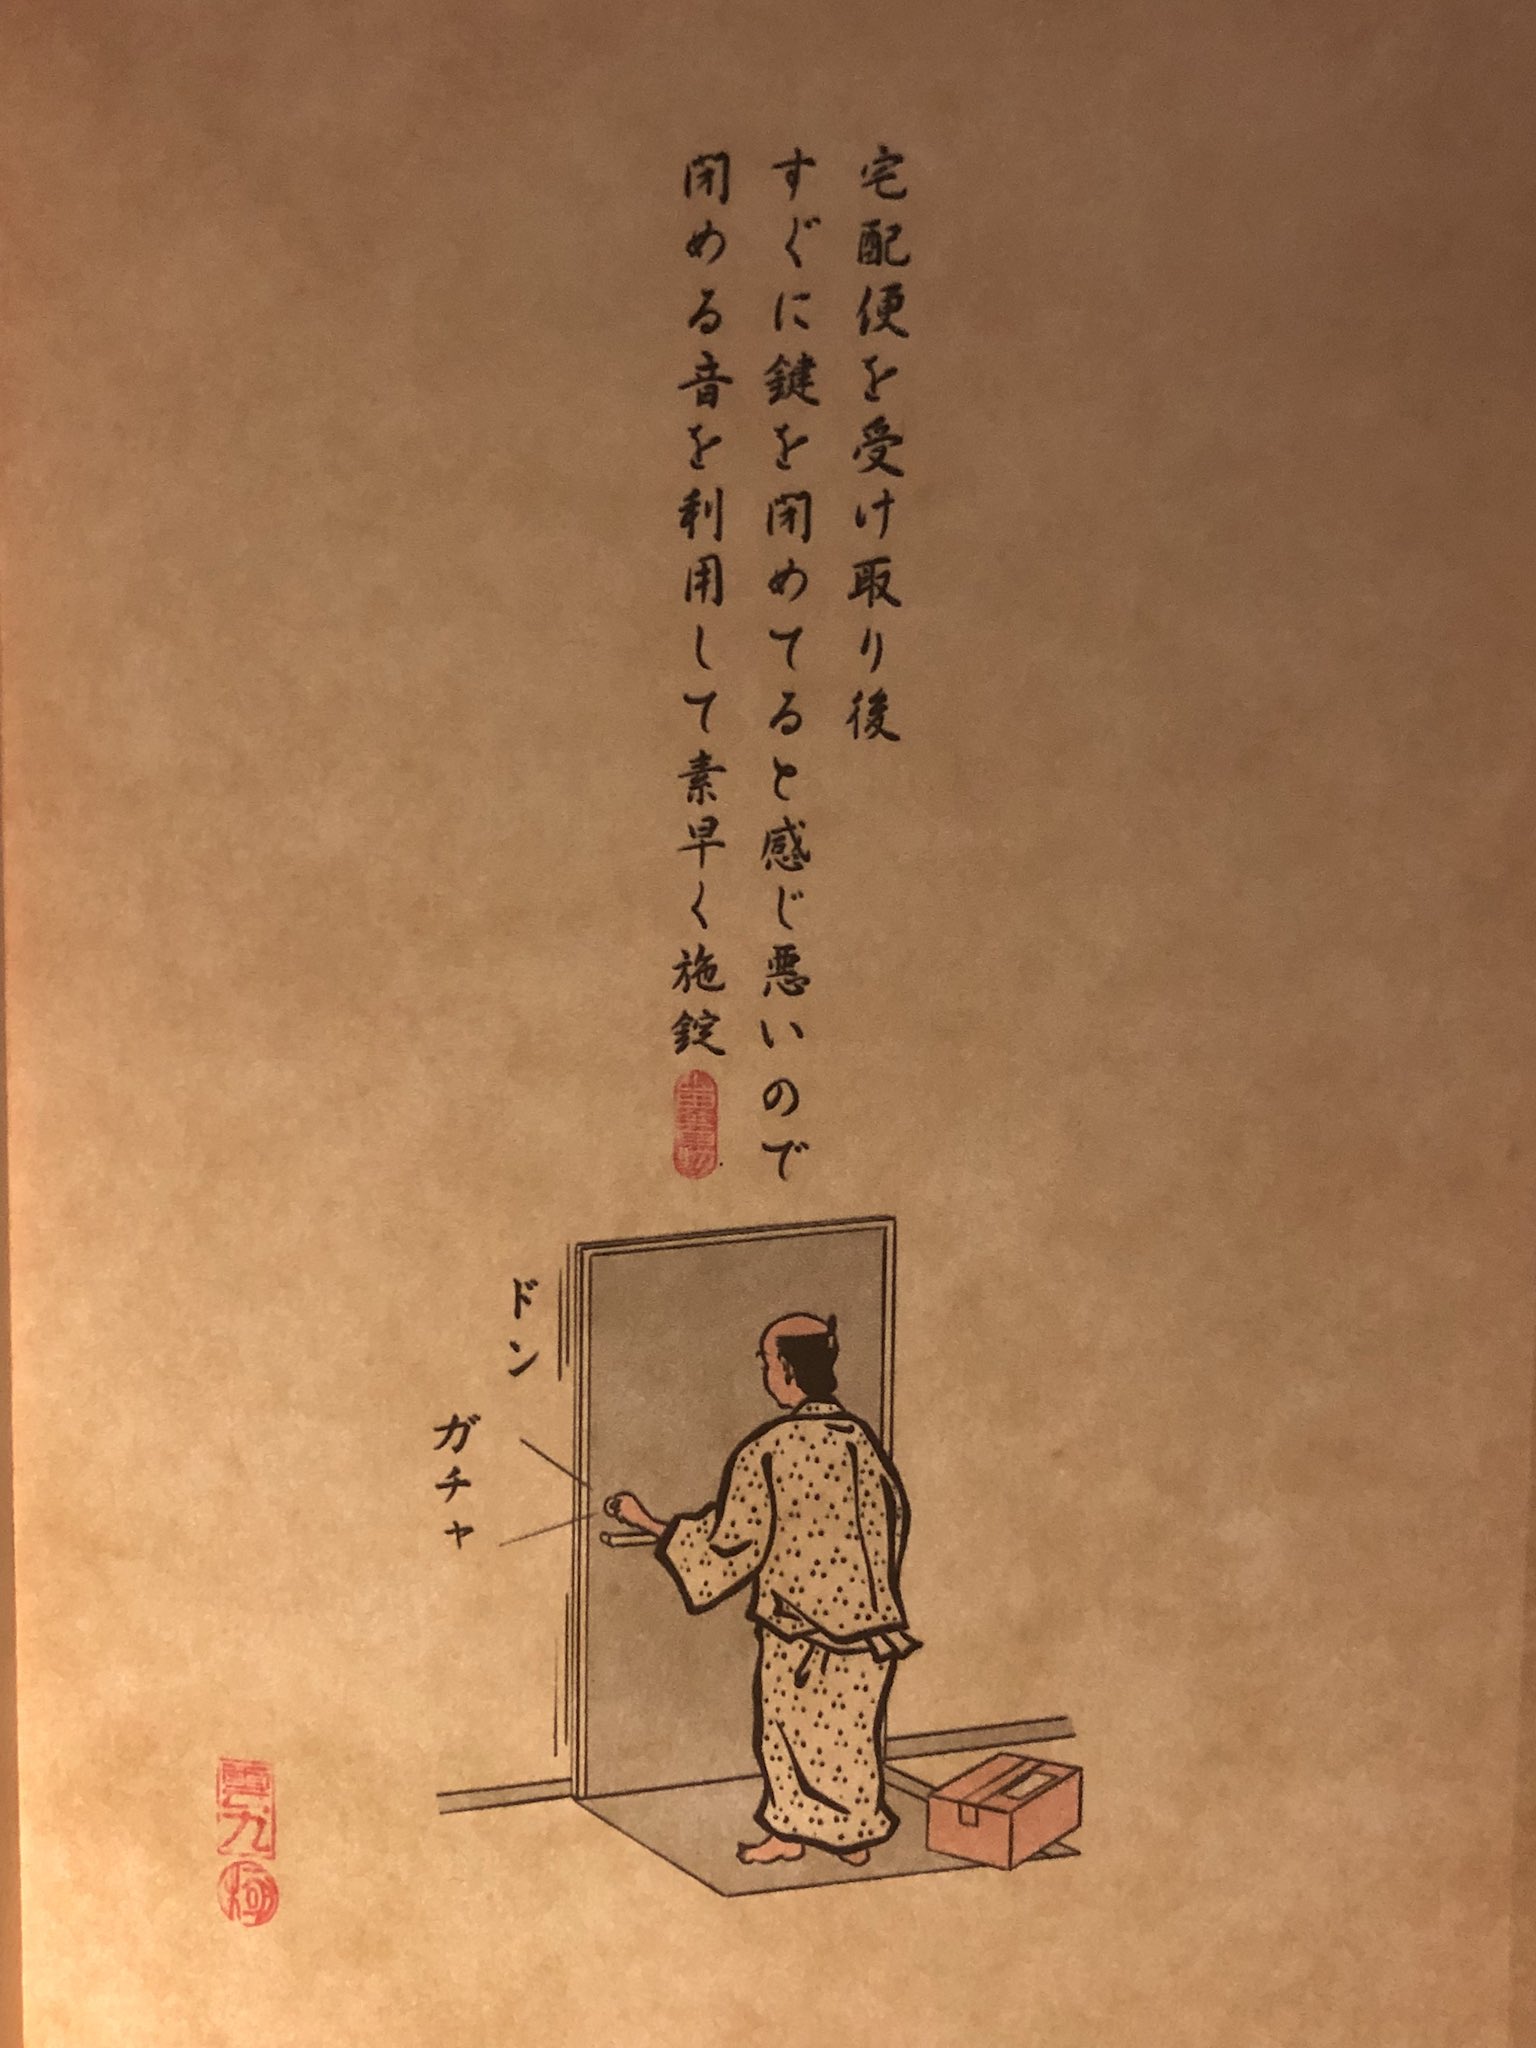 宅配便を受け取り後
すぐに鍵を閉めてると感じ悪いので
閉める音を利用して素早く施錠
ドン
ガチャ